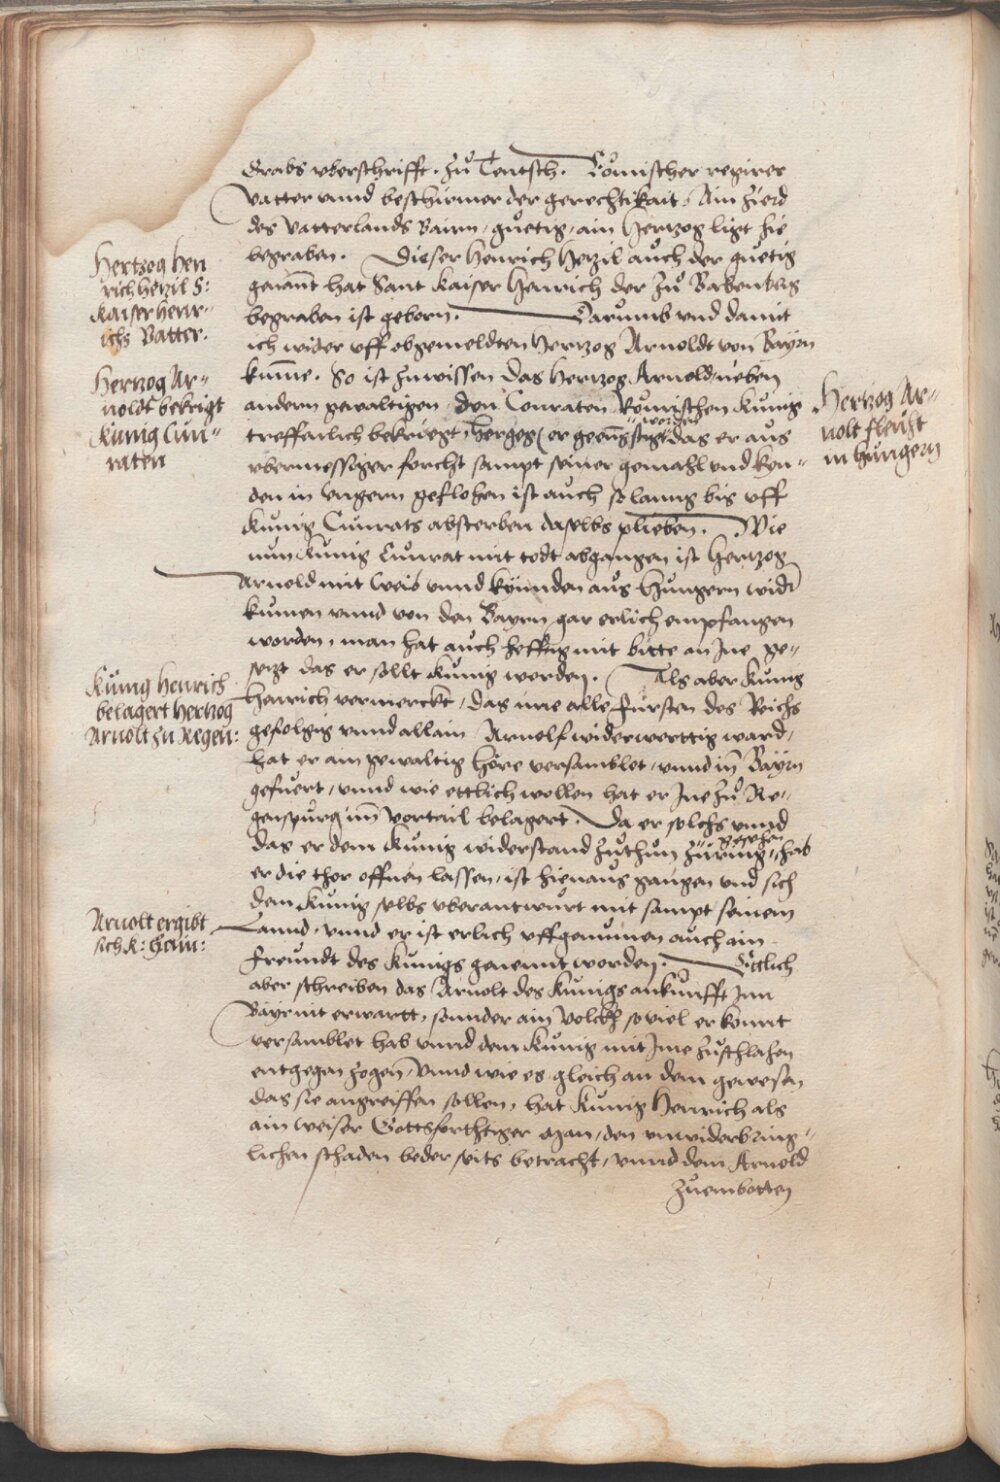 Grabs vberschrifft. Zů Teutsch. Römischer regirer
Vatter vnnd beschirmer der gerechtikait, Ain Zierd
des Vatterlands Bairn, guetig, ain Hertzog ligt hie
begraben. Dieser Henrich Hezil auch der guetig
genannt hat Sant Kaiser Henrich der zů Babenberg
begraben ist geborn. Darumb vnd damit
ich wider vff obgemeldten Hertzog Arnoldt von Bayrn
kumme. So ist zuwissen das Hertzog Arnold neben
andern gewaltigen den Conraten Römischen Kunig
treffenlich bekriegt, er geengstigt worden das er aus
vbermessiger forcht sampt seiner gemahl vnd kyn-
den in Vngern geflohen ist auch so lanng bis vff
Kunig Cunrats absterben daselbs plieben. Wie
nun Kunig Cunrat mit todt abgangen ist Hertzog
Arnold mit Weib vnnd kynnden aus Hungern wider
kumen vnnd von den Bayrn gar erlich empfangen
worden, man hat auch hefftig mit bitte an Ine ge-
setzt das er sollt Kunig werden. Als aber Kunig
Henrich vermerckt, das ime alle Fursten des Reichs
gefolgig vnnd allain Arnolf widerwerttig ward,
hat er ain gewaltig höre versamblet, vnnd inn Bayrn
gefuert, vnnd wie ettlich wollen hat er Ine zů Re-
genspurg im vortail belagert. Da er solchs vnnd
das er dem Kunig widerstand zuthun zuring gesehen, hab
er die thor offnen lassen, ist hienaus gangen vnd sich
dem Kunig selbs vberantwurt mit sampt seinem
Lannd, vnnd er ist erlich vffgenummen auch ain
freundt des Kunigs genennt worden. Ettlich
aber schreiben das Arnolt des Kunigs ankunfft Inn
Bayrn nit erwartt, sunder ain Volckh so viel er konnt
versamblet hab vnnd dem Kunig mit Ime zuschlahen
entgegen zogen, Vnnd wie es gleich an dem gewesen
das sie angreiffen sollen, hat Kunig Henrich als
ain weiser Gottsforchtiger Man, den vnwiderbring-
lichen schaden beder seits betracht, vnnd dem Arnold
zuembotten
Hertzog Hen
rich hezil S:
Kaiser henr-
ichs Vatter.
Hertzog Ar-
noldt bekrigt
Kunig Cun-
raten
Hertzog Ar-
nolt fleucht
in hungern
Kunig Henrich
belagert Hertzog
Arnolt zu Regen:
Arnolt ergibt
sich K: Hein: